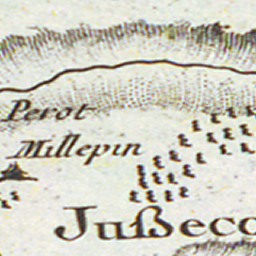 Perot
Millepin
Jußeco